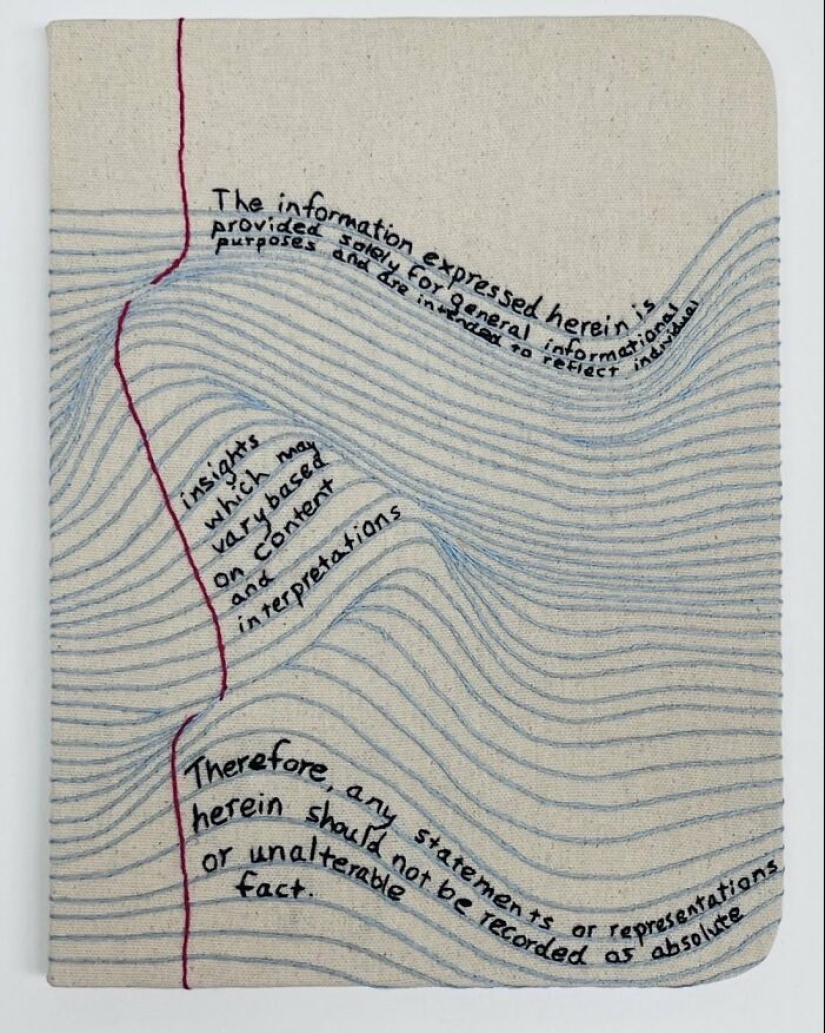 The information expressed herein is
provided solely for general informational
purposes and are intended to reflect individual
insights
which may
vary based
on content
and
interpretations
Therefore, any statements or representations
herein should not be recorded as absolute
or unalterable
fact.